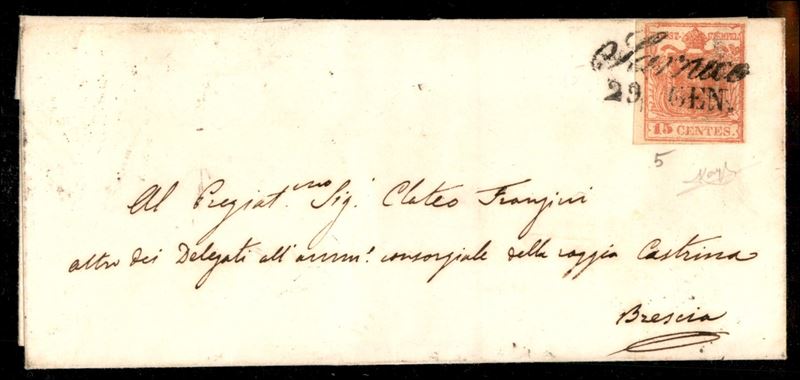 KKPOST-STEMPEL
Sarnico
29. GEN.
15 CENTES.
5
Al Pregiat.mo Sig. Clateo Franzini
altro dei Delegati all' amm. consorziale della roggia Castrina
Brescia